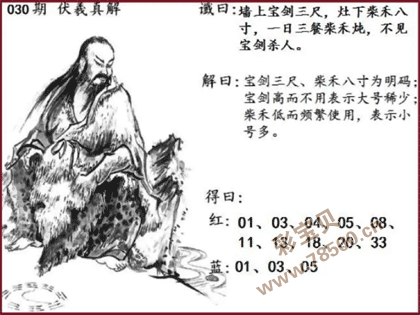 030期 伏羲真解
谶曰：墙上宝剑三尺，灶下柴禾八
寸，一日三餐柴禾炖，不见
宝剑杀人。
解曰：宝剑三尺、柴禾八寸为明码；
宝剑高而不用表示大号稀少；
柴禾低而频繁使用，表示小
号多。
得曰：
红：01、03、04、05、08、
11、13、18、20、33
蓝：01、03、05
彩宝贝
www.78500.cn